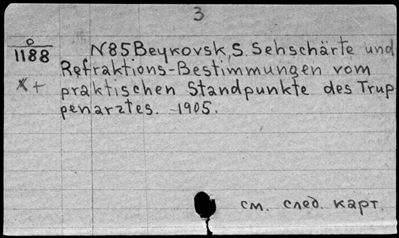 3
0
1188
N85 Beykovsk, S. Sehschärte und
Refraktions-Bestimmungen vom
praktischen Standpunkte des Trup
penarztes. 1905.
см. след. карт.